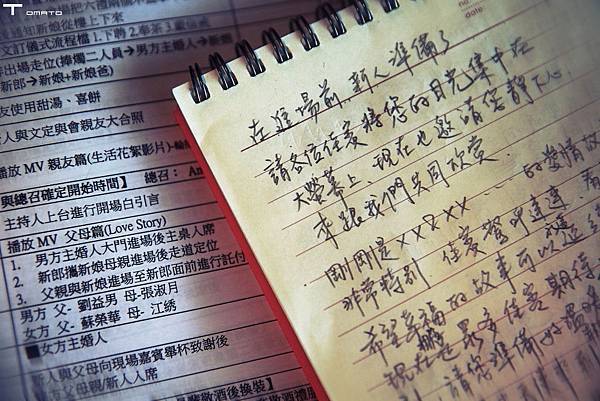 TOMATO
date
no
把六禮兩
通知新娘從樓上下來
文訂儀式流程檔上下的2.奉茶3.
出場走位(捧燭二人員→男方主婚人→新
(新郎→新娘+新娘爸)
友使用甜湯、喜餅
人與文定與會親友大合照
播放 MV 親友篇(生活花絮影片)
與總召確定開始時間】 總召： An
主持人上台進行開場白引言
播放 MV 父母篇(Love Story)
1. 男方主婚人大門進場後主桌人席
2. 新郎攜新娘母親進場後走道定位
3. 父親與新娘進場至新郎面前進行託付
男方 父- 劉益男 母-張淑月
女方 父- 蘇榮華 母- 江绣
■女方主婚人
新人與父母向現場嘉賓舉杯致謝後
父母親/新人入席
敬酒後換裝】
在進場前，新人準備了
請各位佳賓將您的目光集中在
大螢幕上，現在也邀請您靜下心
來跟我們共同欣賞
剛剛是××2××……的愛情故
非常特別 佳賓
希望幸福的故事可以
現在也 眾多佳賓期
請您準備好